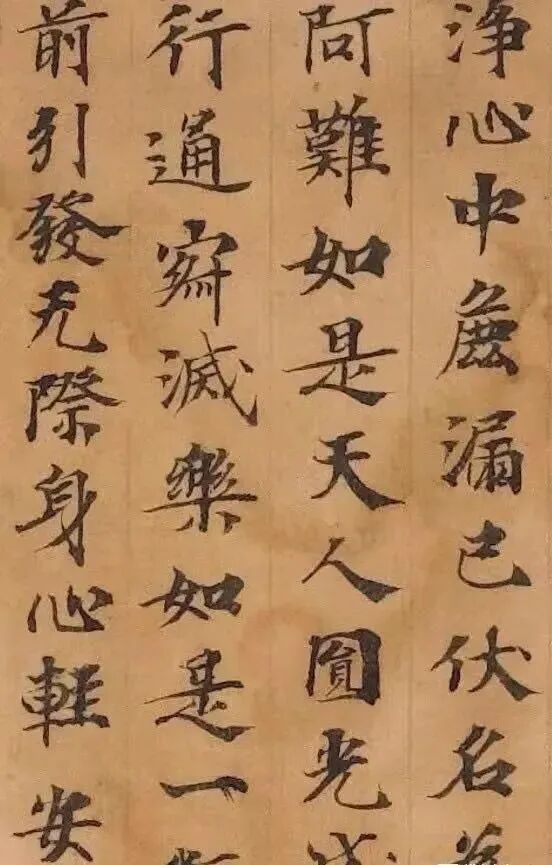 淨心中麁漏已伏名
阿難如是天人圓光成
行通寂滅樂如是一
前引發无際身心輕安